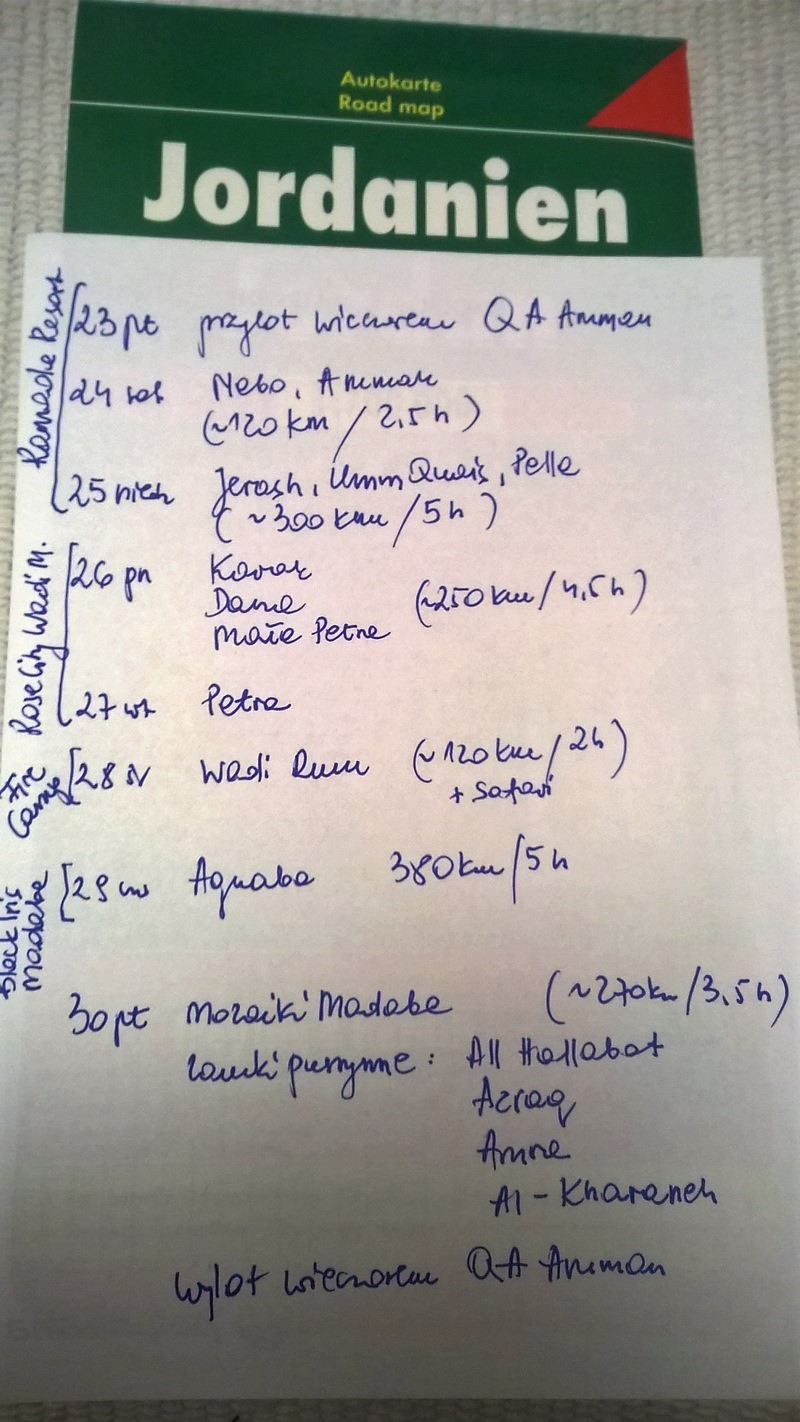 Autokarte
Road map
Jordanien
Ramada Resort
23 pt przylot wieczorem QA Amman
24 sob Nebo, Amman
(~120 km / 2,5 h)
25 niedz Jerash, Umm Quais, Pella
(~300 km / 5 h)
Rose City Wadi M.
26 pn Karak
Dana (~250 km / 4,5 h)
Małe Petra
27 wt Petra
Fire Camp
28 śr Wadi Rum (~120 km / 2h)
+ Safari
Black Iris Madaba
29 czw Aquaba 380 km / 5 h
30 pt Mozaiki Madaba (~270 km / 3,5 h)
zamki pustynne : All Hallabat
Azraq
Amra
Al - Kharaneh
Wylot wieczorem QA Amman